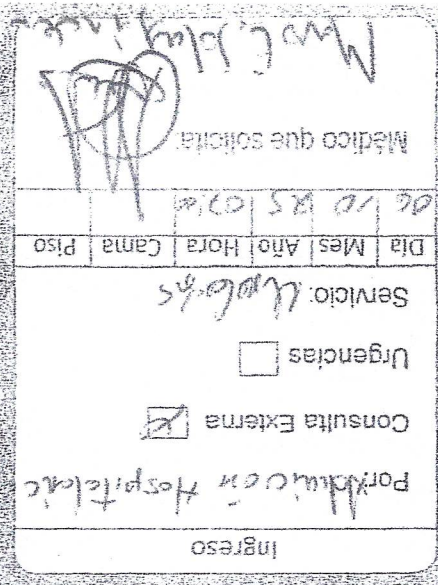 Ingreso
Por: Admición Hospitalaria
Consulta Externa
Urgencias
Servicio: Urología
Día Mes Año Hora Cama Piso
06 10 25 07:00
Médico que solicita: